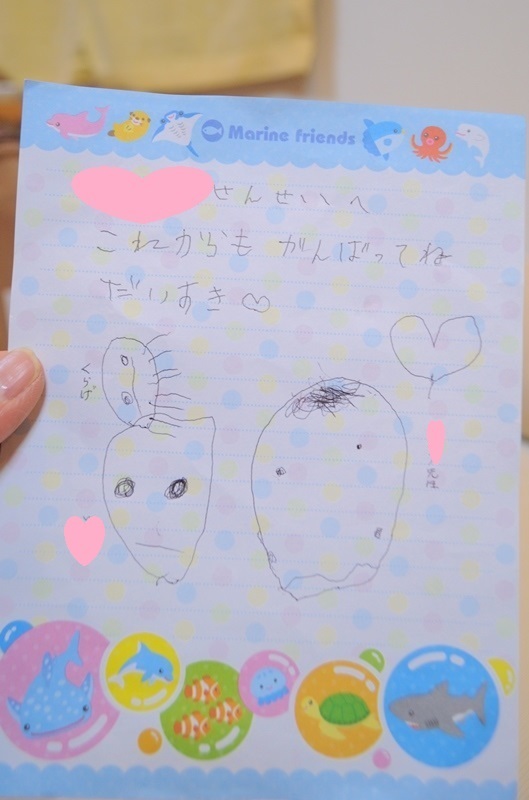 Marine friends
せんせいへ
これからも がんばってね
だいすき♡
くらげ
先生